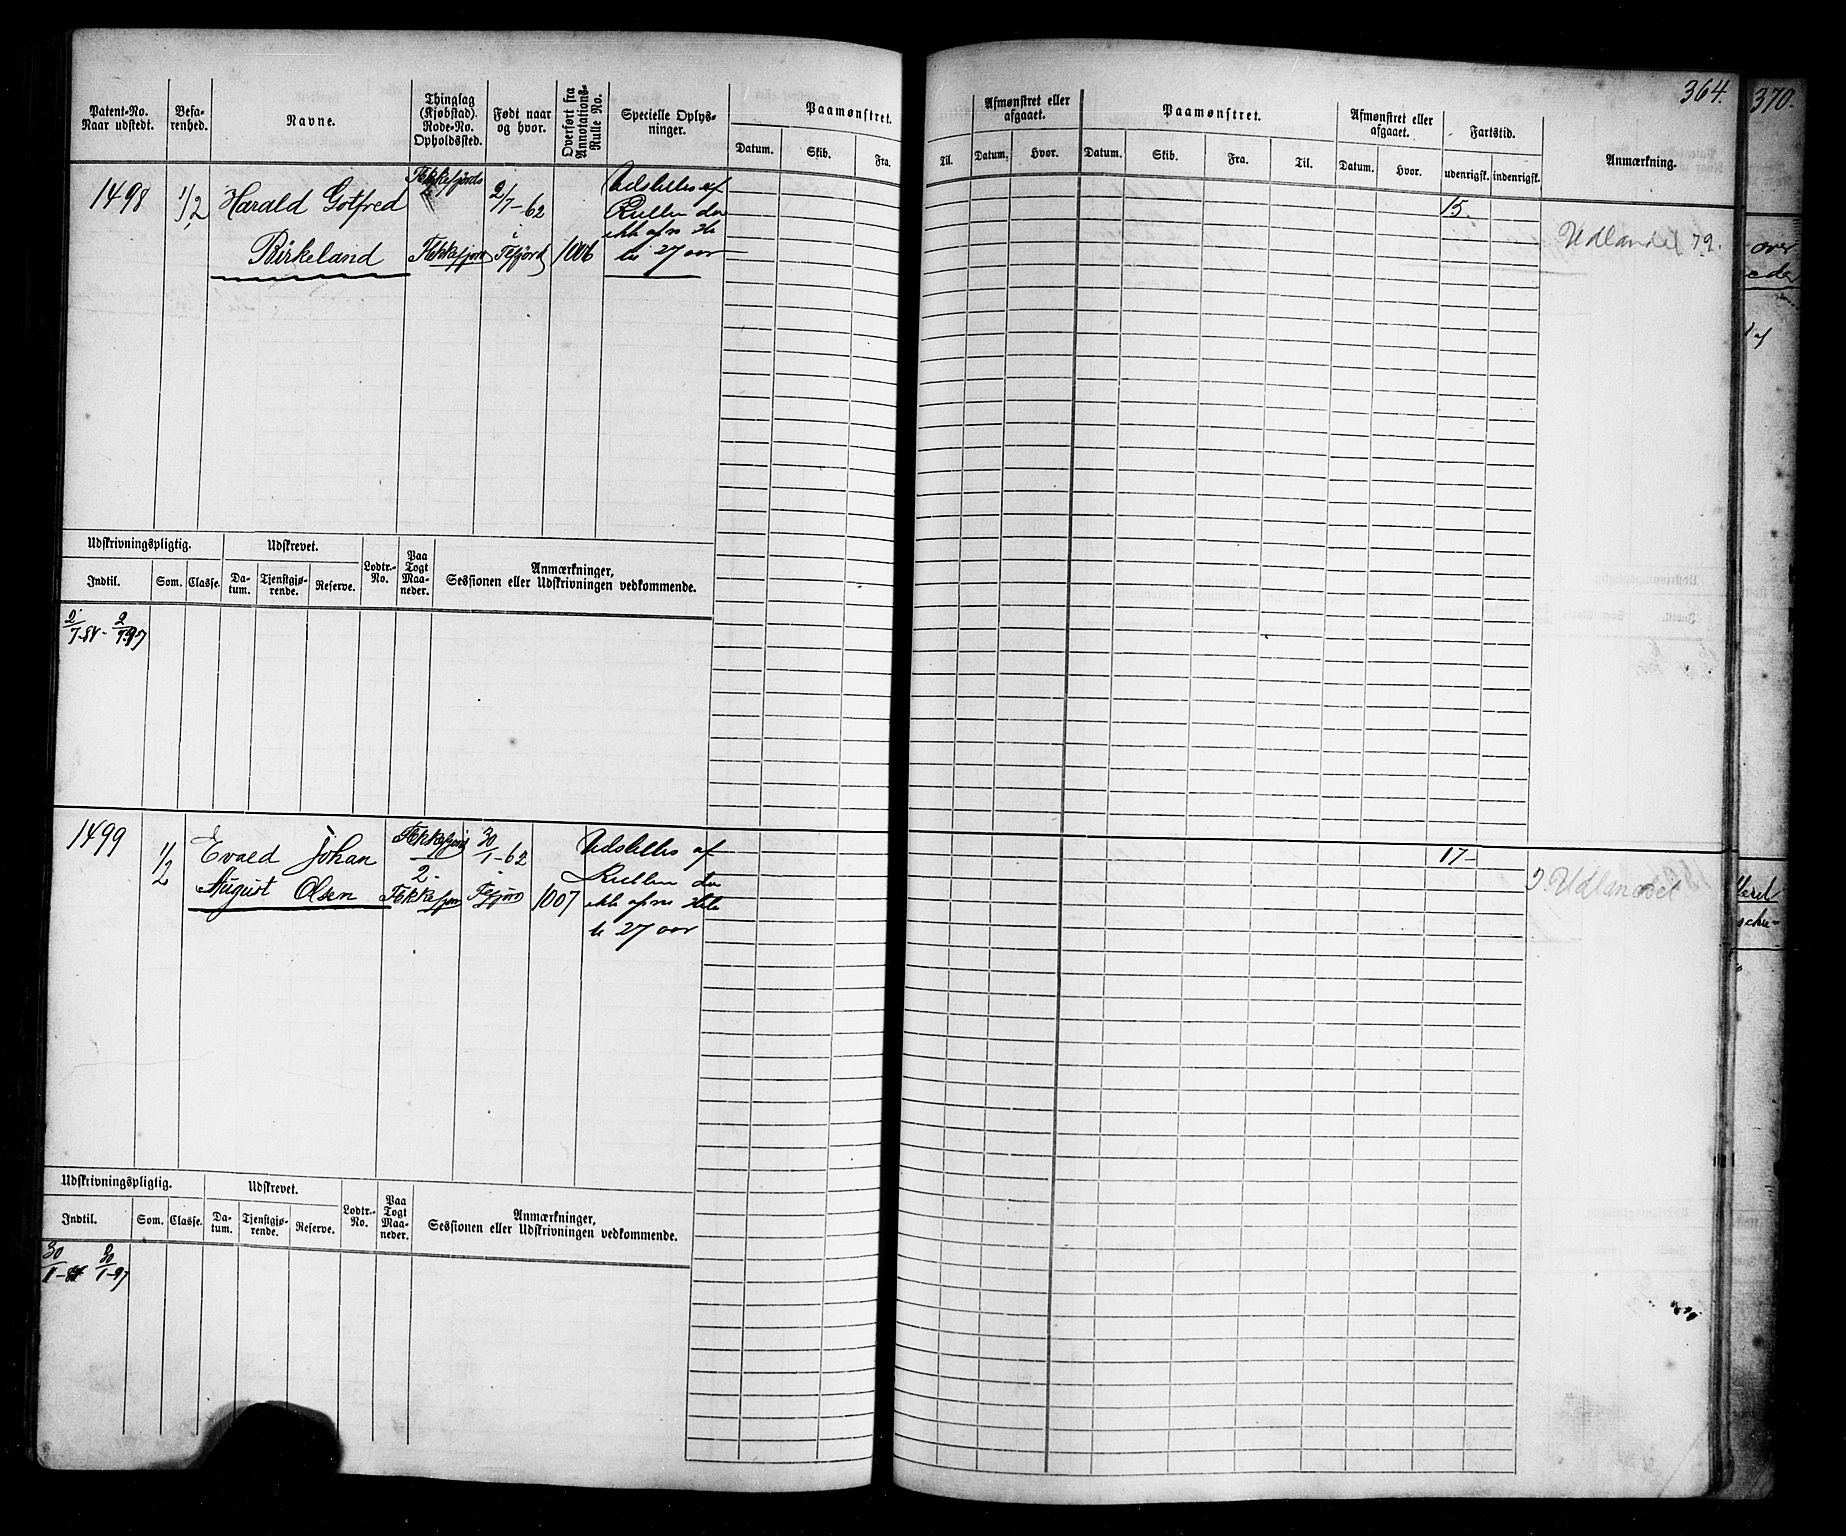 364.
370.
Patent-No. Naar udstedt.
Befa-renhed.
Navne.
Thinglag (Kjøbstad). Rode-No. Opholdssted.
Født naar og hvor.
Overført fra Annotations-Rulle No.
Specielle Oplys-ninger.
Paamønstret.
Datum. Skib. Fra.
Til.
Afmønstret eller afgaaet.
Datum. Hvor.
Paamønstret.
Datum. Skib. Fra. Til.
Afmønstret eller afgaaet.
Datum. Hvor.
Fartstid.
udenrigsk. indenrigsk.
Anmærkning.
1498 1/2 Harald Gotfred
Birkeland
Flekkefjords
Flekkefjord
2/7-62
i Ffjord
1006
Udslettes af
Rullen da
ikke afm
27 aar
15.
Udlandet 79.
Udskrivningspligtig. Udskrevet. Lodtr.-No. Paa Togt Maa-neder. Anmærkninger,
Sessionen eller Udskrivningen vedkommende.
Indtil. Som. Classe. Da-tum. Tjenstgjø-rende. Reserve.
2/7-84 - 2/7-97
1499 1/2 Evald Johan
August Olsen
Flekkefjord
2.
Flekkefjor
30/1-62
Ffjord
1007
Udslettes af
Rullen da
27 aar
17-
Udlandet
Udskrivningspligtig. Udskrevet. Lodtr.-No. Paa Togt Maa-neder. Anmærkninger,
Sessionen eller Udskrivningen vedkommende.
Indtil. Som. Classe. Da-tum. Tjenstgjø-rende. Reserve.
30/1-84 30/1-97